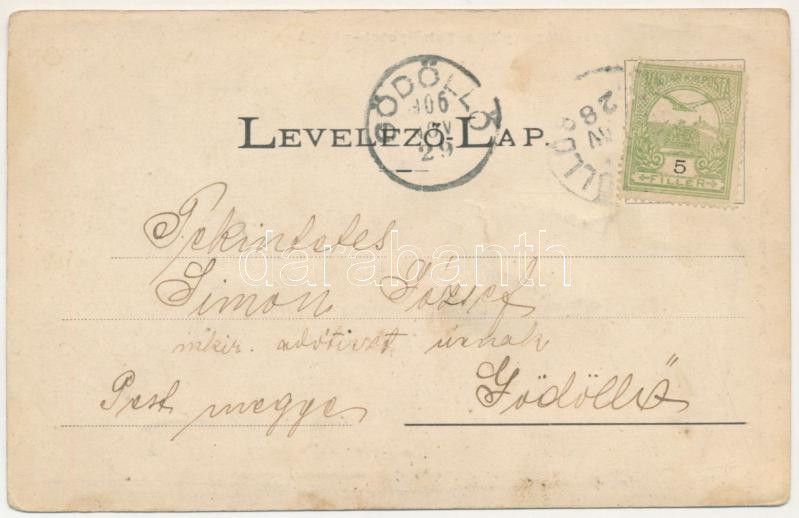 GÖDÖLLŐ
906
NOV
29
28
MAGYAR KIR. POSTA
5
FILLÉR
LEVELEZŐ-LAP.
Tekintetes
Simon József
m kir. adótiszt úrnak
Pest megye
Gödöllő
darabanth